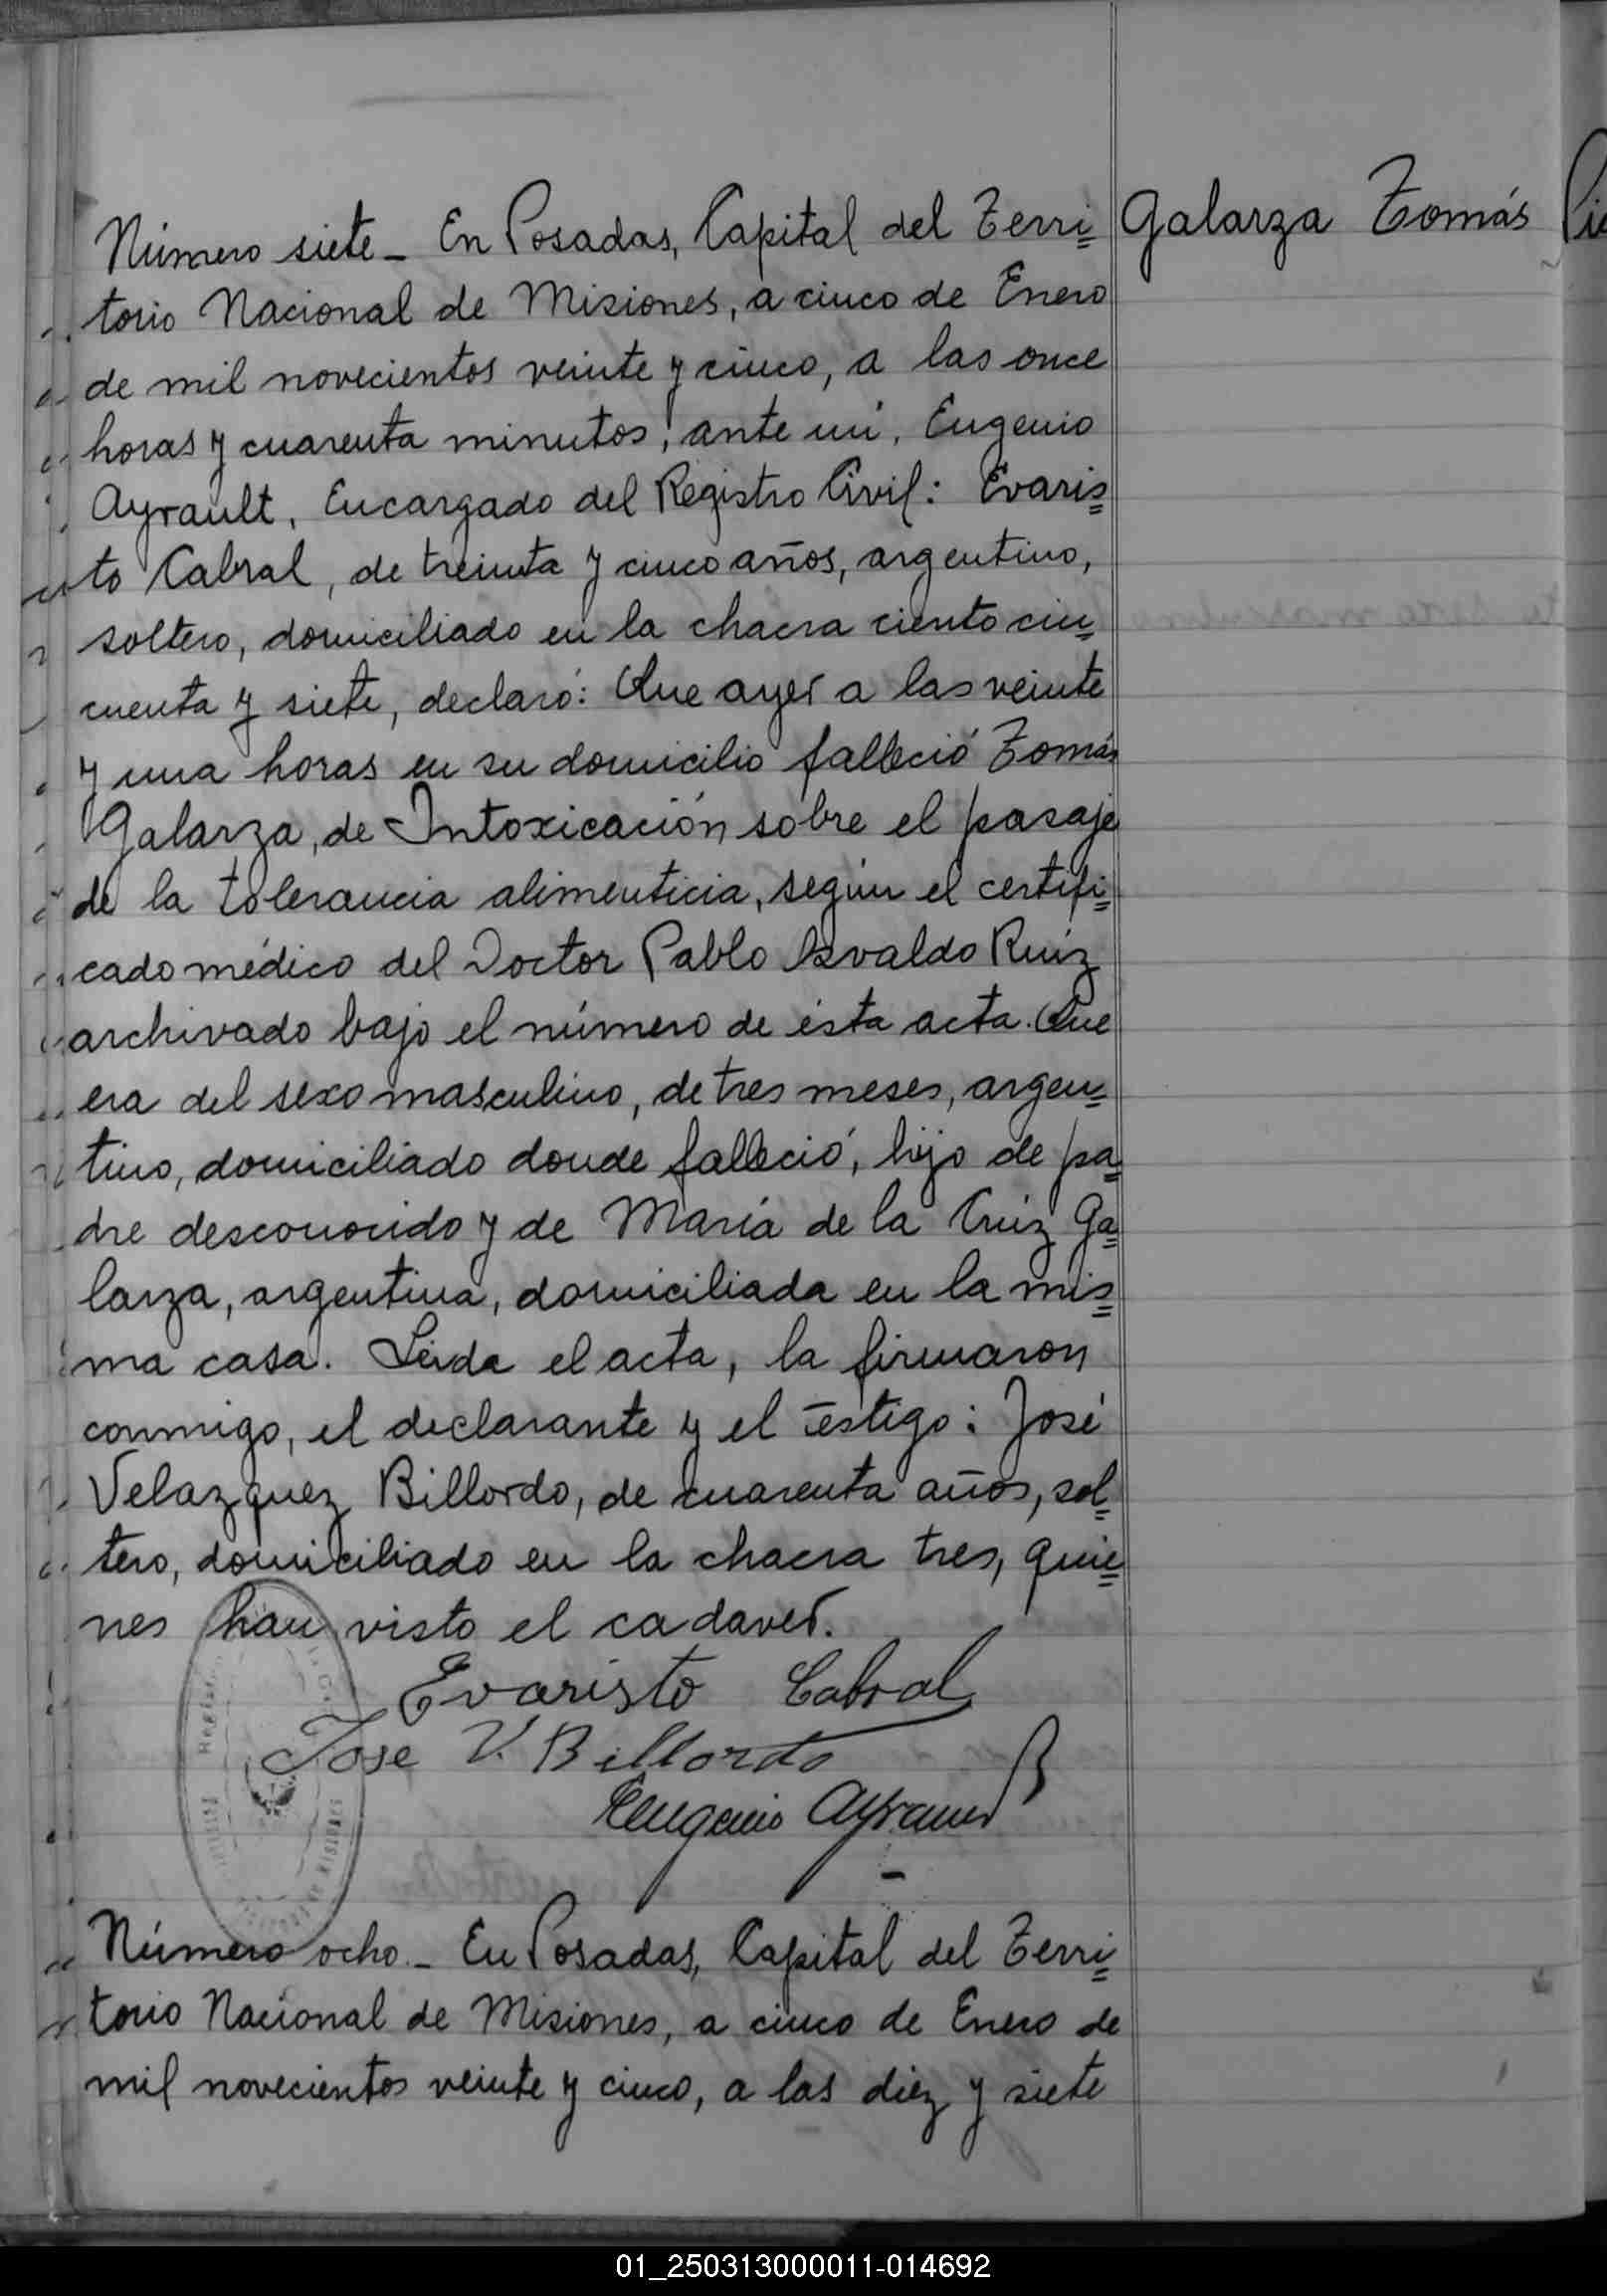 Galarza Tomás
Número siete – En Posadas, Capital del Terri=
torio Nacional de Misiones, a cinco de Enero
de mil novecientos veinte y cinco, a las once
horas y cuarenta minutos, ante mí, Eugenio
Ayrault, Encargado del Registro Civil: Evaris=
to Cabral, de treinta y cinco años, argentino,
soltero, domiciliado en la chacra ciento cin=
cuenta y siete, declaró: Que ayer a las veinte
y una horas en su domicilio falleció Tomás
Galarza, de Intoxicación sobre el pasaje
de la tolerancia alimenticia, según el certifi=
cado médico del Doctor Pablo Osvaldo Ruiz
archivado bajo el número de ésta acta. Que
era del sexo masculino, de tres meses, argen=
tino, domiciliado donde falleció, hijo de pa=
dre desconocido y de María de la Cruz Ga=
larza, argentina, domiciliada en la mis=
ma casa. Leida el acta, la firmaron
conmigo, el declarante y el testigo: José
Velazquez Billordo, de cuarenta años, sol=
tero, domiciliado en la chacra tres, quie=
nes han visto el cadaver.
Evaristo Cabral
Jose V. Billordo
Eugenio Ayrault
Número ocho. – En Posadas, Capital del Terri=
torio Nacional de Misiones, a cinco de Enero de
mil novecientos veinte y cinco, a las diez y siete
01_250313000011-014692